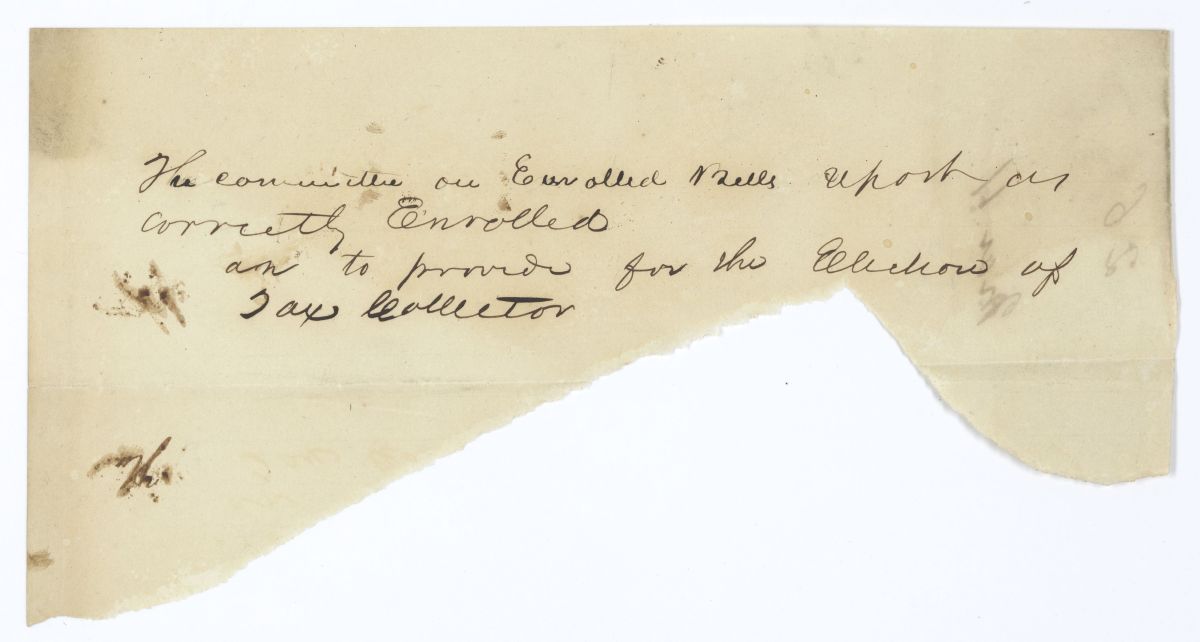 The committee on Enrolled Bills report as
correctly Enrolled
an to provide for the Election of
Tax Collector
Th